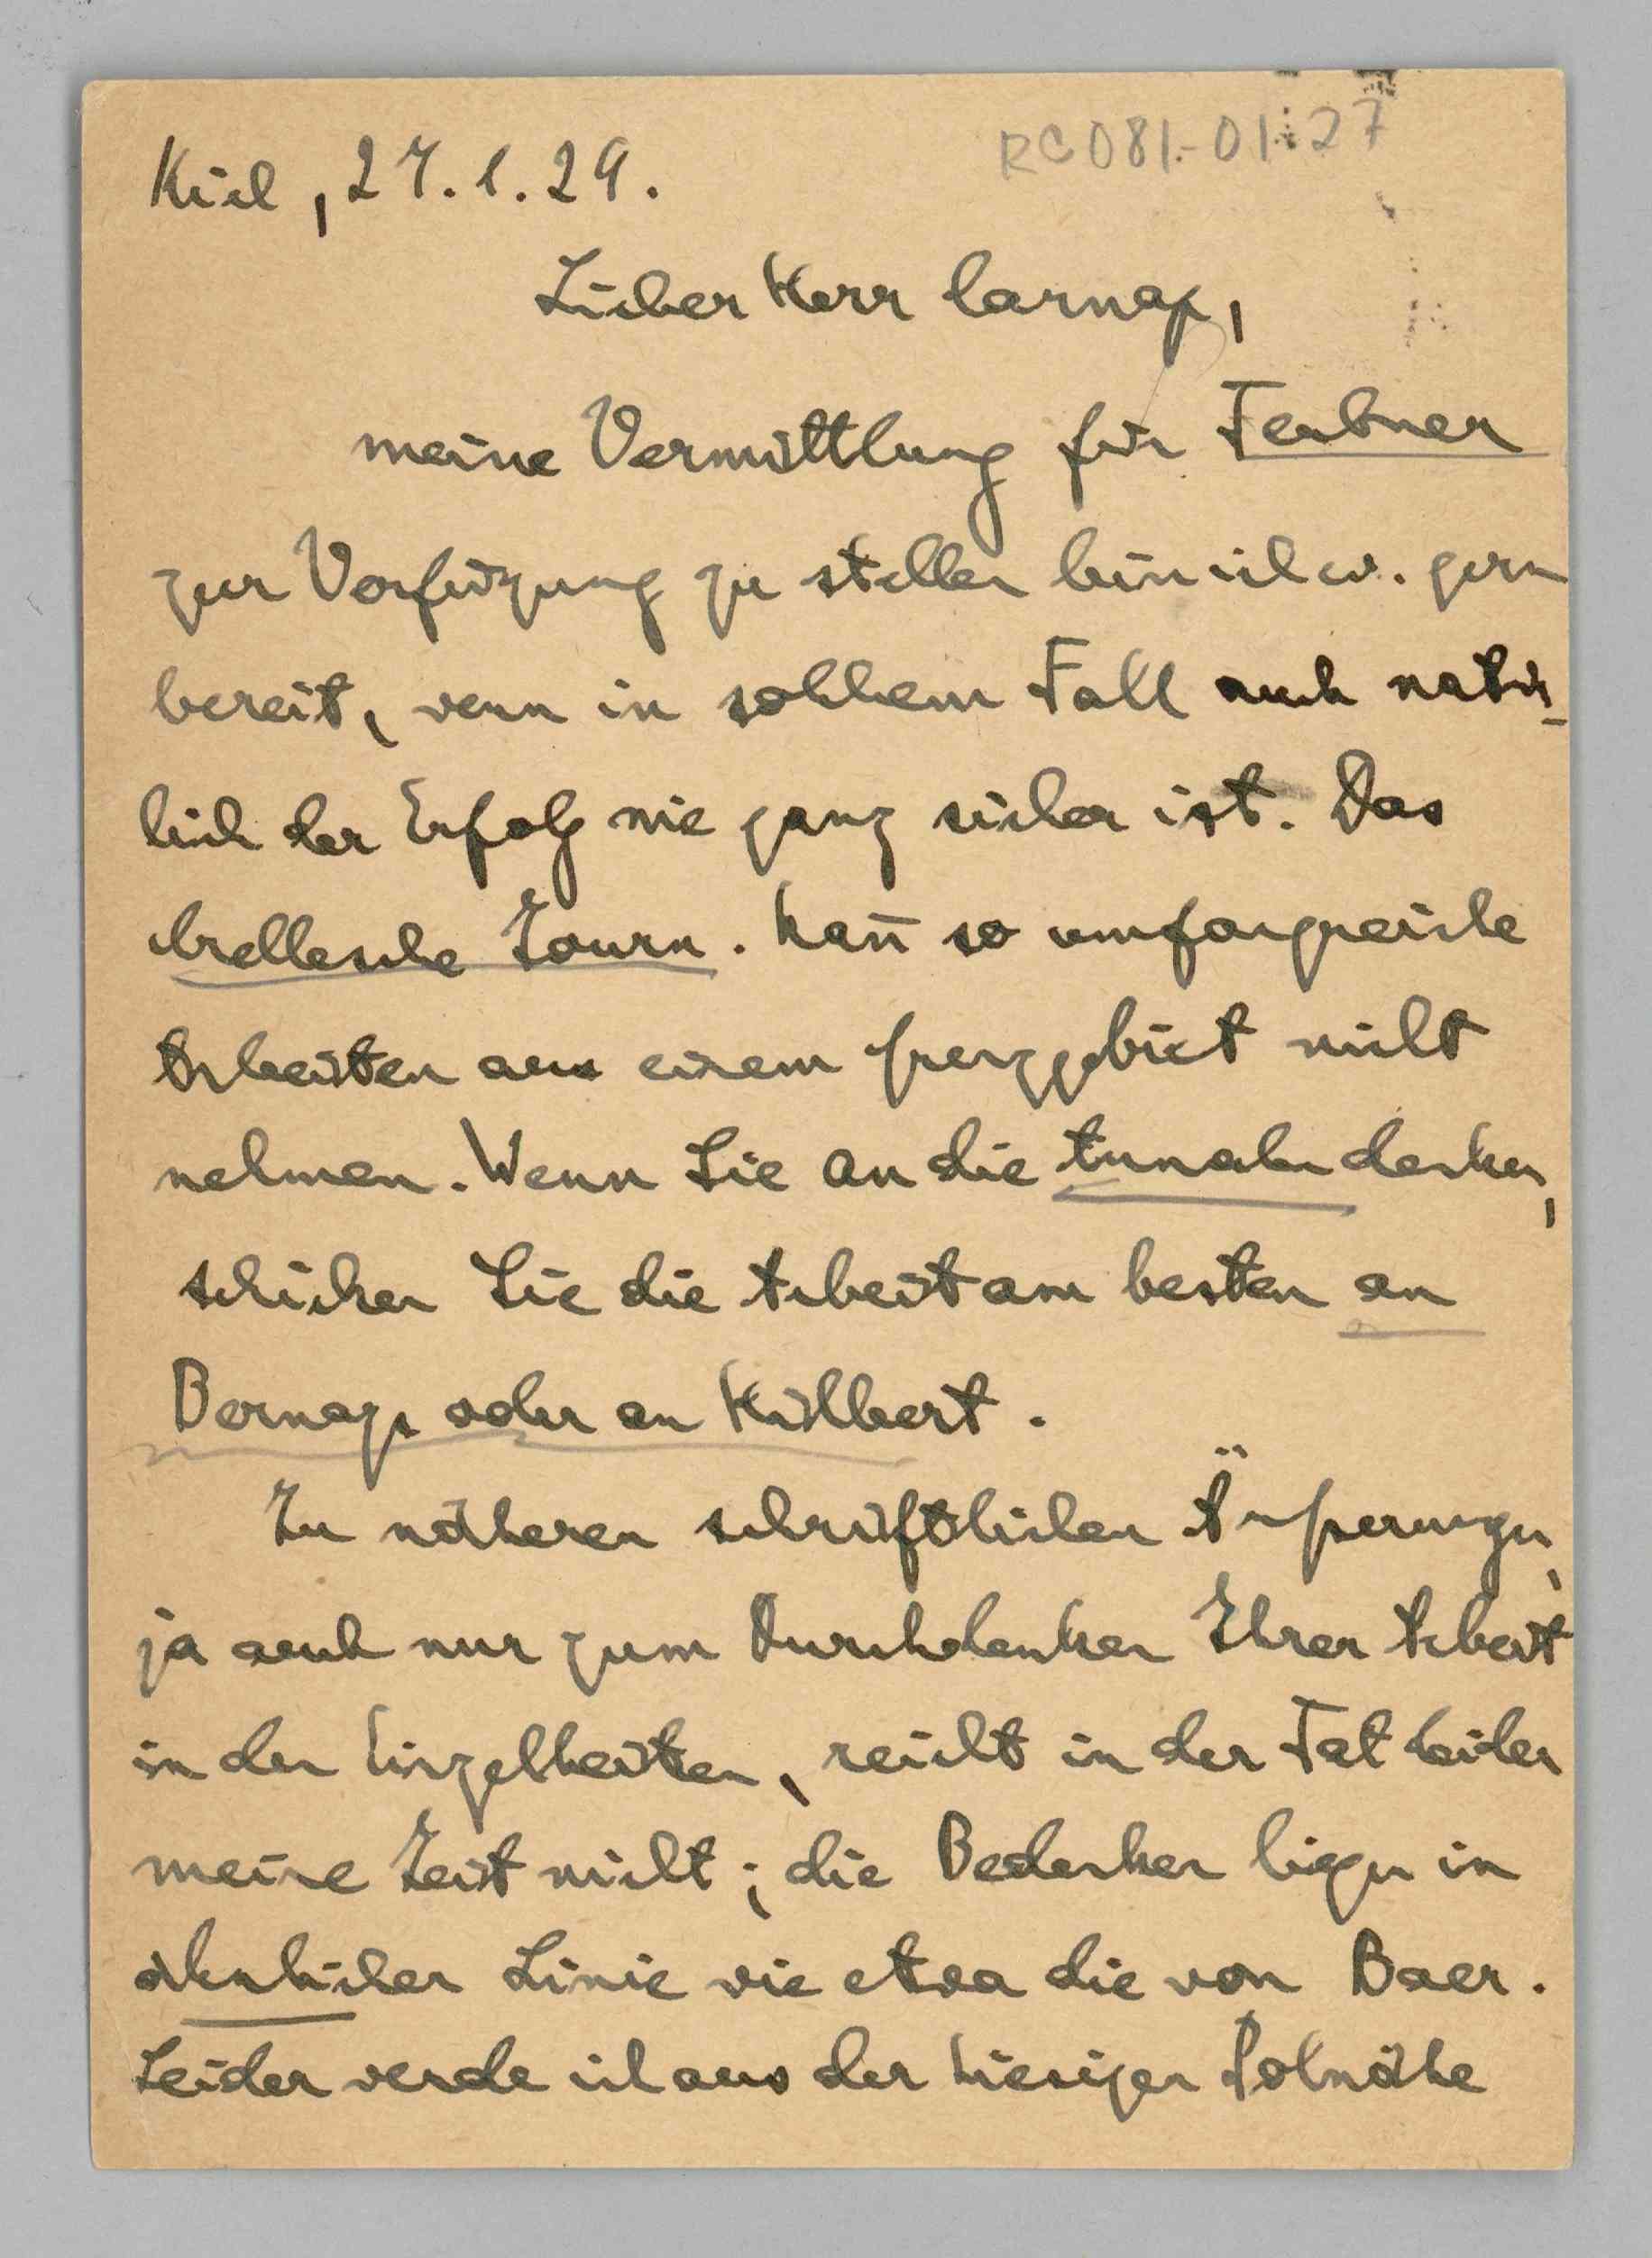 RC 081-01-27
Kiel, 27.1.29.
Lieber Herr Carnap,
meine Vermittlung für Teubner
zur Verfügung zu stellen bin ich ev. gern
bereit, wenn in solchem Fall auch natür-
lich der Erfolg nie ganz sicher ist. Das
Crellesche Journ. kann so umfangreiche
Arbeiten aus einem Grenzgebiet nicht
nehmen. Wenn Sie an die Annalen denken,
schicken Sie die Arbeit am besten an
Bernays oder an Hilbert.
Zu näheren schriftlichen Äußerungen,
ja auch nur zum Durchdenken Ihrer Arbeit
in den Einzelheiten, reicht in der Tat leider
meine Zeit nicht; die Bedenken liegen in
ähnlicher Linie wie etwa die von Baer.
Leider werde ich aus der hiesigen Polnähe